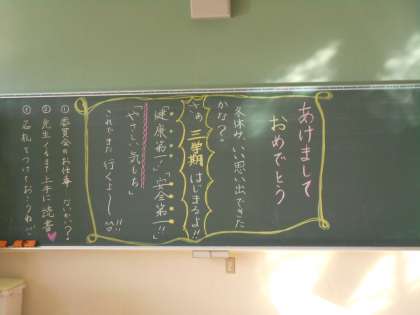 あけまして
おめでとう
冬休み、いい思い出できた
かな？？
さぁ 三学期 はじまるよ!!
「健康第一」「安全第一!!」
「やさしい気もち」
これできた 行くよ〜!!
①委員会のお仕事 ないかい？？
②先生くるまで上手に読書
③名札 つけておこうね!!